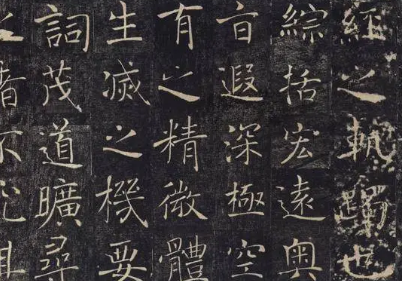 經之軌躅也
綜括宏遠奧
旨遐深極空
有之精微體
生滅之機要
詞茂道曠尋
之者不究其